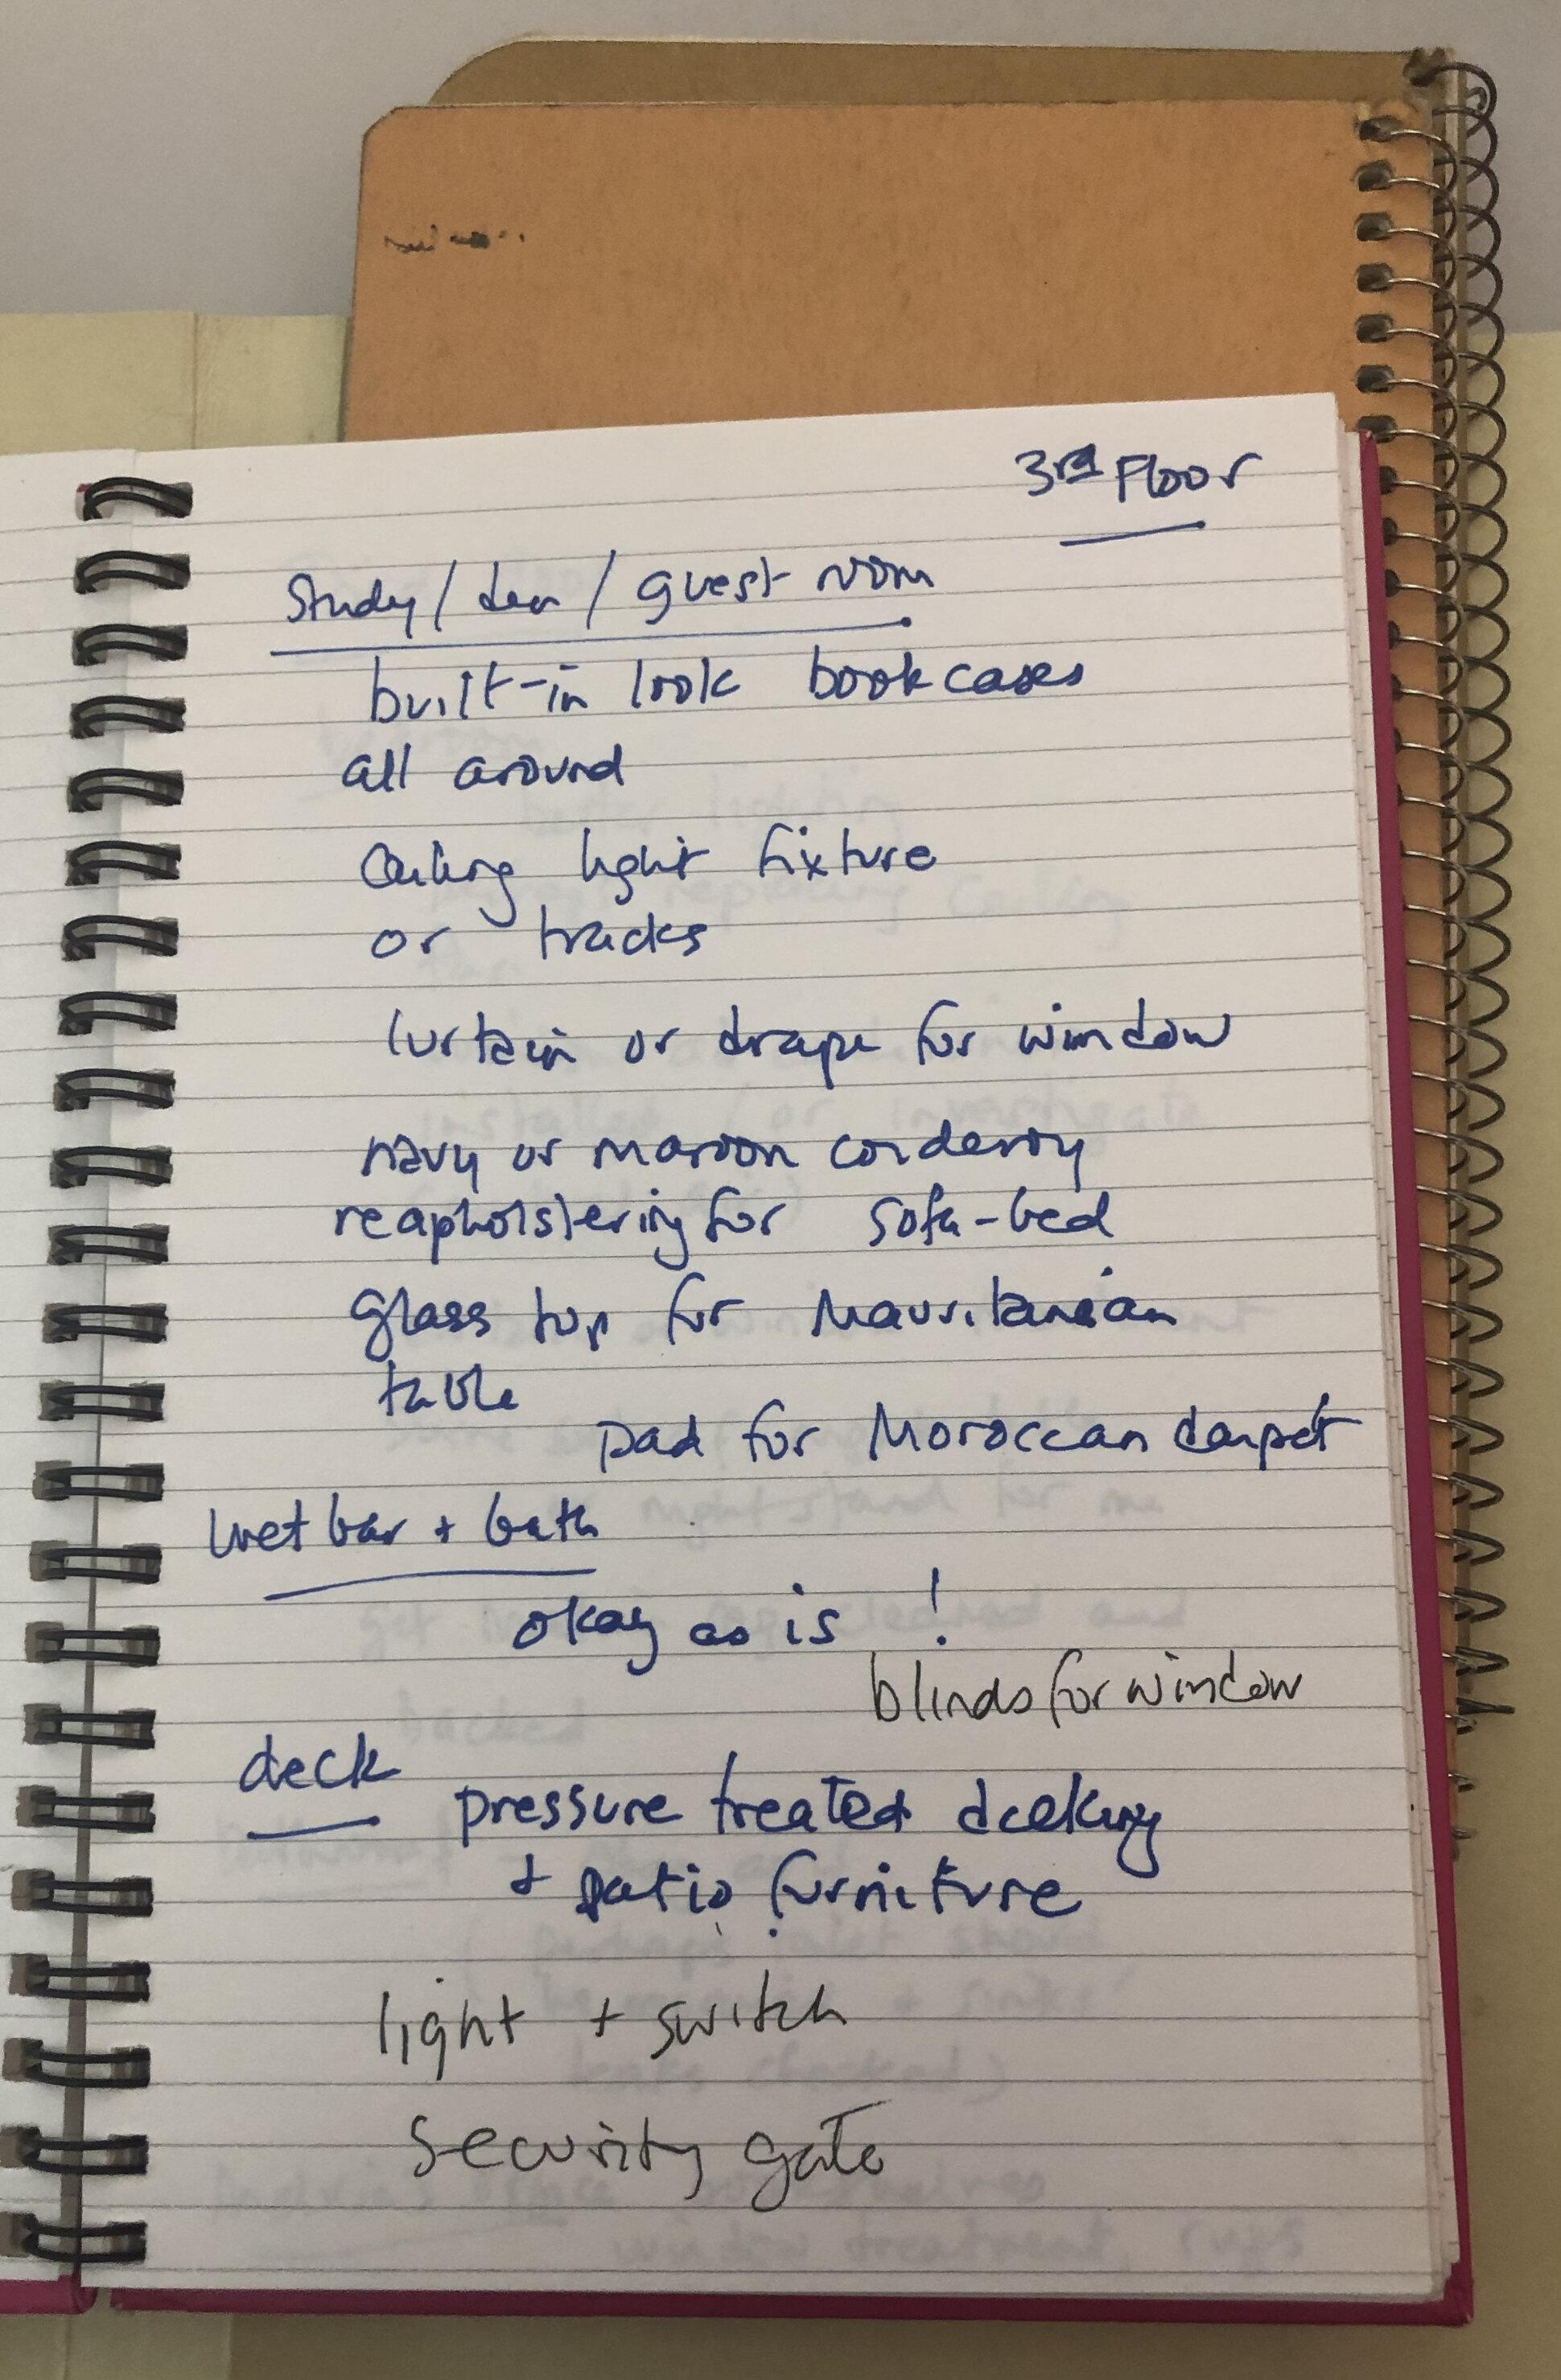 3rd Floor
Study / den / guest room
built-in look bookcases
all around
Ceiling light fixture
or tracks
curtain or drape for window
navy or maroon corderoy
reapholstering for sofa-bed
glass top for Mauritanian
table
pad for Moroccan carpet
wet bar + bath
okay as is !
blinds for window
deck
pressure treated decking
+ patio furniture
light + switch
security gate